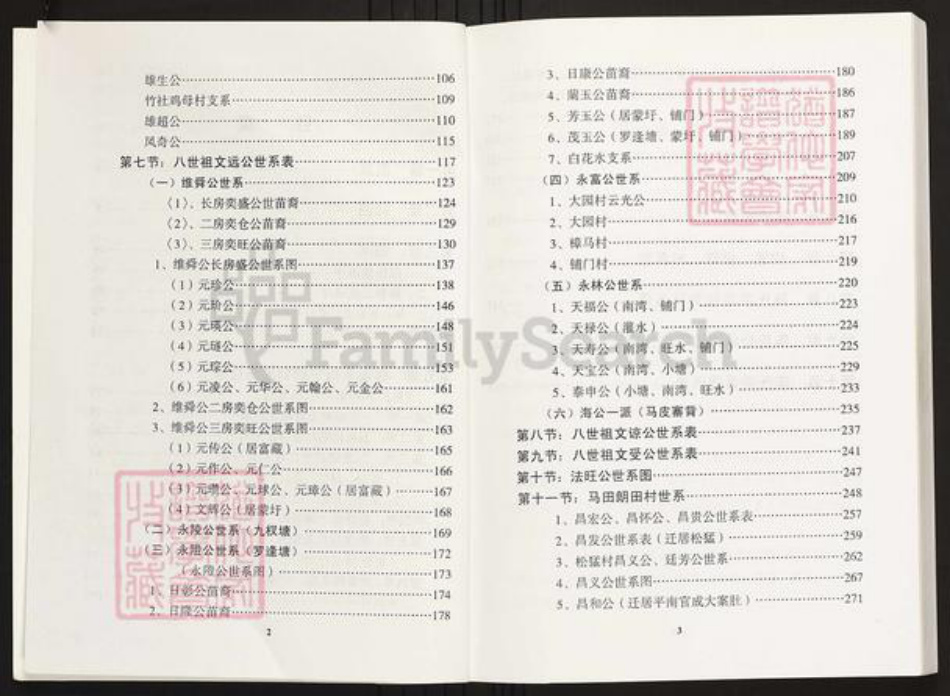 雄生公 106
竹社鸡母村支系 109
雄超公 110
凤奇公 115
第七节：八世祖文远公世系表 117
（一）维舜公世系 123
（1）、长房奕盛公世苗裔 124
（2）、二房奕仓公苗裔 129
（3）、三房奕旺公苗裔 130
1、维舜公长房盛公世系图 137
（1）元珍公 138
（2）元玠公 146
（3）元瑛公 148
（4）元琏公 151
（5）元琮公 153
（6）元凌公、元华公、元翰公、元金公 161
2、维舜公二房奕仓公世系图 162
3、维舜公三房奕旺公世系图 163
（1）元传公（居富藏） 165
（2）元作公、元仁公 166
（3）元瓒公、元球公、元璋公（居富藏） 167
（4）文辉公（居蒙圩） 168
（二）永陵公世系（九权塘） 169
（三）永隥公世系（罗逢塘） 172
（永隥公世系图） 173
1、日彰公苗裔 174
2、日隆公苗裔 178
2
3、日康公苗裔 180
4、蘭玉公苗裔 186
5、芳玉公（居蒙圩、铺门） 187
6、茂玉公（罗逢塘、蒙圩、铺门） 189
7、白花水支系 207
（四）永富公世系 209
1、大园村云光公 210
2、大园村 216
3、樟马村 217
4、铺门村 219
（五）永林公世系 220
1、天福公（南湾、铺门） 223
2、天禄公（灌水） 224
3、天寿公（南湾、旺水、铺门） 225
4、天宝公（南湾、小塘） 229
5、泰申公（小塘、南湾、旺水） 233
（六）海公一派（马皮寨背） 235
第八节：八世祖文谅公世系表 237
第九节：八世祖文受公世系表 241
第十节：法旺公世系图 247
第十一节：马田朗田村世系 248
1、昌宏公、昌怀公、昌贵公世系表 257
2、昌发公世系表（迁居松猛） 259
3、松猛村昌义公、廷芳公世系 262
4、昌义公世系图 267
5、昌和公（迁居平南官成大案肚） 271
3
FamilySearch